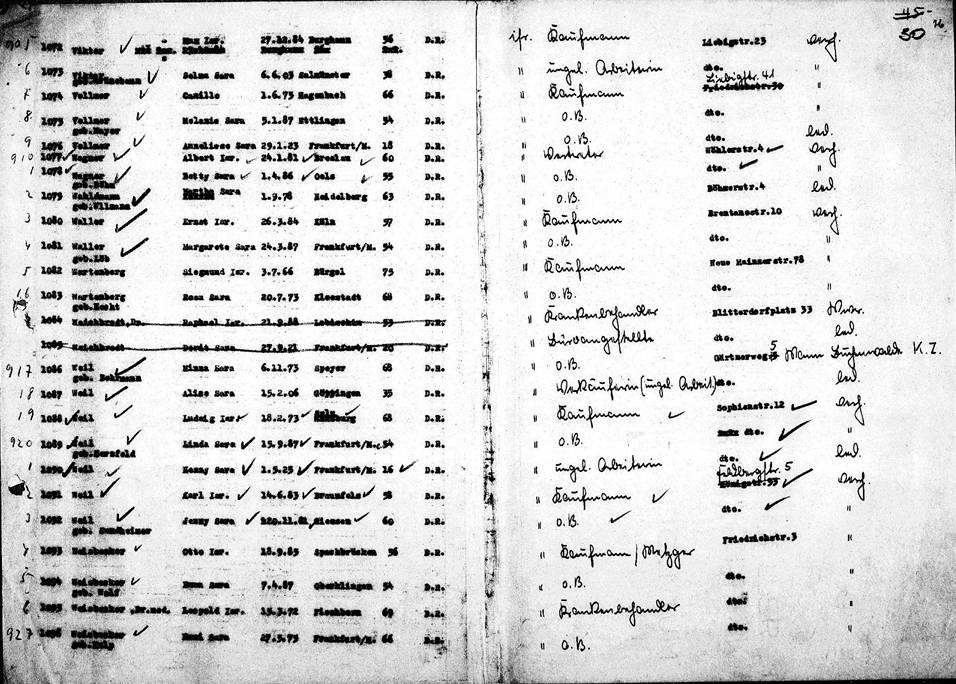 45
50
905 1072 Viktor Max Isr. 27.12.84 56 D.R. isr. Kaufmann Liebigstr.23 verh.
6 1073 Selma Sara 6.6.03 Salmünster 38 D.R. " ungel. Arbeiterin dto. "
Liebigstr. 41
7 1074 Vollmer Camille 1.6.75 Hagenbach 66 D.R. " Kaufmann Friedrichstr.30 "
8 1075 Vollmer Melanie Sara 5.1.87 Ettlingen 54 D.R. " o.B. dto. "
geb.Mayer
9 1076 Vollmer Anneliese Sara 29.1.23 Frankfurt/M. 18 D.R. " o.B. dto. led.
910 1077 Wagner Albert Isr. 24.1.81 Breslau 60 D.R. " Vertreter Wöhlerstr.4 verh.
1 1078 Wagner Betty Sara 1.4.86 Oels 55 D.R. " o.B. dto. "
geb.Böhm
2 1079 Wahlmann Martha Sara 1.9.78 Heidelberg 63 D.R. " o.B. Böhmerstr.4 led.
geb.Ullmann
3 1080 Waller Ernst Isr. 26.3.84 Köln 57 D.R. " Kaufmann Brentanostr.10 verh.
4 1081 Waller Margarete Sara 24.3.87 Frankfurt/M. 54 D.R. " o.B. dto. "
geb.Löb
5 1082 Wartenberg Siegmund Isr. 3.7.66 Bürgel 75 D.R. " Kaufmann Neue Mainzerstr.78 "
16 1083 Wartenberg Rosa Sara 20.7.73 Kleestadt 68 D.R. " o.B. dto. "
geb.Hecht
1084 Raphael Isr. 21.9.88 53 D.R. " Krankenbehandler Blitterdorfplatz 33 Wwr.
1085 Dorit Sara 27.9.21 Frankfurt/M. 20 D.R. " Büroangestellte dto. led.
917 1086 Weil Minna Sara 6.11.73 Speyer 68 D.R. " o.B. Gärtnerweg 5 Mann Buchenwalde K.Z.
18 1087 Weil Alice Sara 15.2.06 Göppingen 35 D.R. " Verkäuferin (ungel. Arbeit) dto. led.
19 1088 Weil Ludwig Isr. 18.2.73 68 D.R. " Kaufmann Sophienstr.12 verh.
920 1089 Weil Linda Sara 15.9.87 Frankfurt/M. 54 D.R. " o.B. dto. "
geb.Bernfeld
1 1090 Weil Sara 1.5.25 Frankfurt/M. 16 D.R. " ungel. Arbeiterin dto. led.
Feldbergstr. 5
2 1091 Weil Karl Isr. 14.6.83 Braunfels 58 D.R. " Kaufmann Königstr. verh.
3 1092 Weil Jenny Sara 20.11.81 60 D.R. " o.B. dto. "
geb. Sundheimer
1093 Weisbecker Otto Isr. 18.9.85 Spachbrücken 56 D.R. " Kaufmann / Metzger Friedrichstr.3 "
5 1094 Weisbecker Emma Sara 7.4.87 54 D.R. " o.B. dto. "
geb. Wolf
6 1095 Weisbecker,Dr.med. Leopold Isr. 15.3.72 Fischborn 69 D.R. " Krankenbehandler dto. "
927 1096 Weisbecker Sara 27.5.75 Frankfurt/M. 66 D.R. " o.B. dto. "